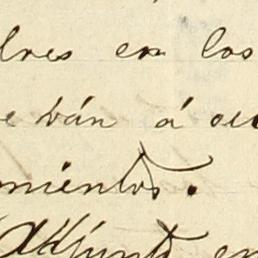 lres en los
e bán á oc
mientos.
Adjunto en